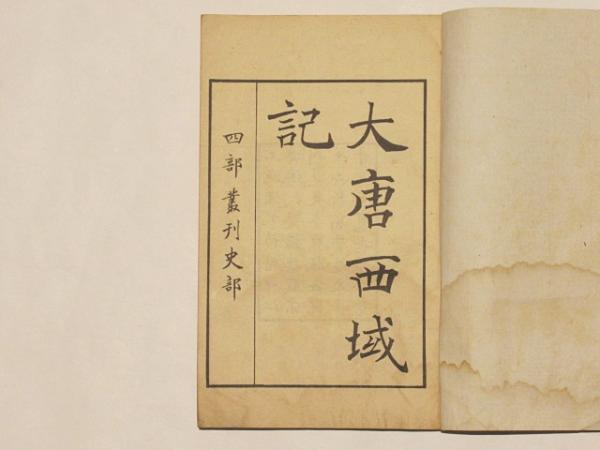 大唐西域
記
四部叢刊史部